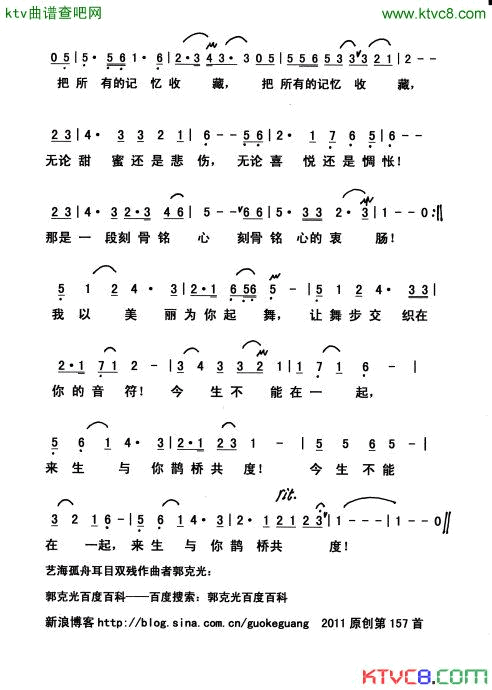 ktv曲谱查吧网 www.ktvc8.com
0 5 | 5· 5 6 1 6· | 2·3 4 3 3· | 3 0 5 | 5· 5 5 6 5 3 3 3 2 1 | 2 - -
把所有的记忆收藏，把所有的记忆收藏，
2 3 | 4· 3 3 2 1 | 6 - - 5 6 | 2· 1 7 6 5 | 6 - -
无论甜蜜还是悲伤，无论喜悦还是惆怅！
2 3 | 4· 3 2·3 4 6 | 5 - - 6 6 | 5· 3 3 2· 3 | 1 - - 0 :||
那是一段刻骨铭心刻骨铭心的衷肠！
5 1 2 4· 3 | 2·1 6 5 6 5 - | 5 1 2 4· 3 3 |
我以美丽为你起舞，让舞步交织在
2·1 7 1 2 - | 3 4 3 3 2 2 | 1 7 1 6 - |
你的音符！今生不能在一起，
5 6 1 4· 3 | 2·1 2 3 1 - | 5 5 6 5 |
来生与你鹊桥共度！今生不能
rit.
3 2 1 6 - | 5 6 1 4· 3 | 2·1 2 1 2 3 | 1 - - - | 1 - - 0 ||
在一起，来生与你鹊桥共度！
艺海孤舟耳目双残作曲者郭克光：
郭克光百度百科——百度搜索：郭克光百度百科
新浪博客http://blog.sina.com.cn/guokeguang 2011 原创第 157 首
KTVC8.com